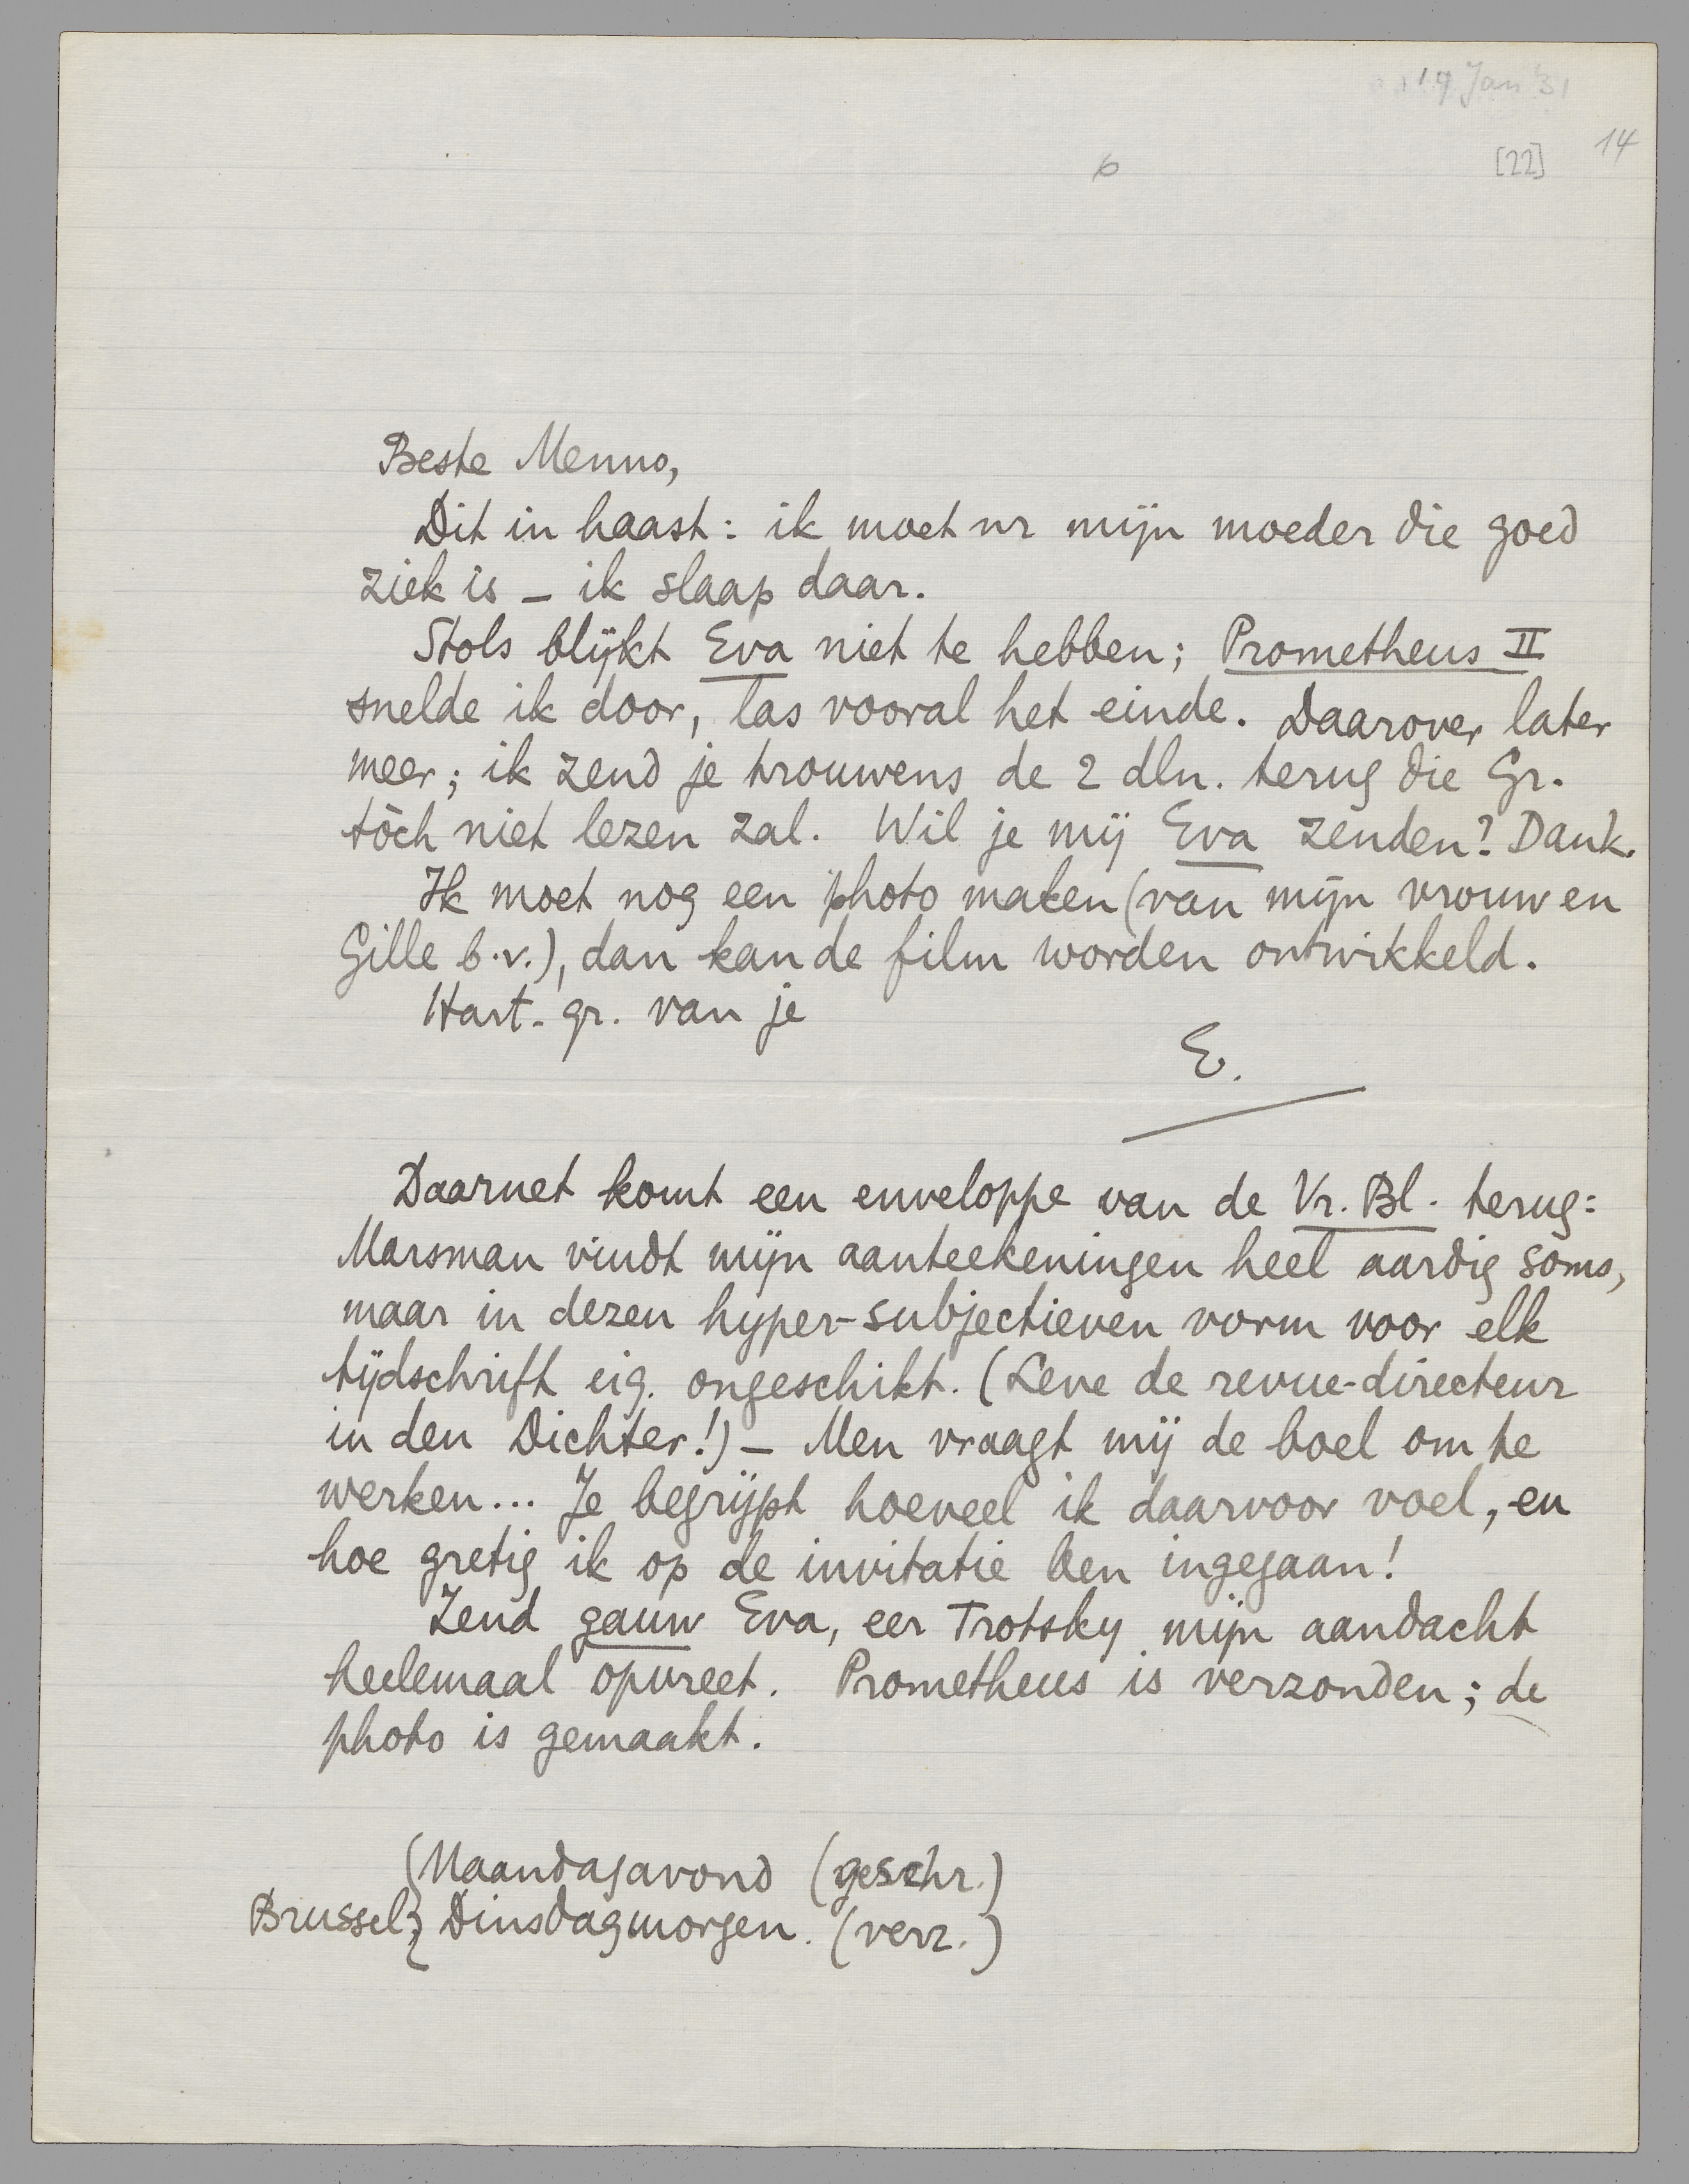 17 Jan '31
14
6
[22]
Beste Menno,
Dit in haast: ik moet nr mijn moeder die goed
ziek is – ik slaap daar.
Stols blijkt Eva niet te hebben; Prometheus II
snelde ik door, las vooral het einde. Daarover later
meer; ik zend je trouwens de 2 dln. terug die Gr.
tòch niet lezen zal. Wil je mij Eva zenden? Dank.
Ik moet nog een photo maken (van mijn vrouw en
Gille b.v.), dan kan de film worden ontwikkeld.
Hart. gr. van je
E.
Daarnet komt een enveloppe van de Vr. Bl. terug:
Marsman vindt mijn aanteekeningen heel aardig soms,
maar in dezen hyper-subjectieven vorm voor elk
tijdschrift eig. ongeschikt. (Leve de revue-directeur
in den Dichter!) – Men vraagt mij de boel om te
werken... Je begrijpt hoeveel ik daarvoor voel, en
hoe gretig ik op de invitatie ben ingegaan!
Zend gauw Eva, eer Trotsky mijn aandacht
heelemaal opvreet. Prometheus is verzonden; de
photo is gemaakt.
Maandagavond (geschr.)
Brussel, Dinsdagmorgen. (verz.)